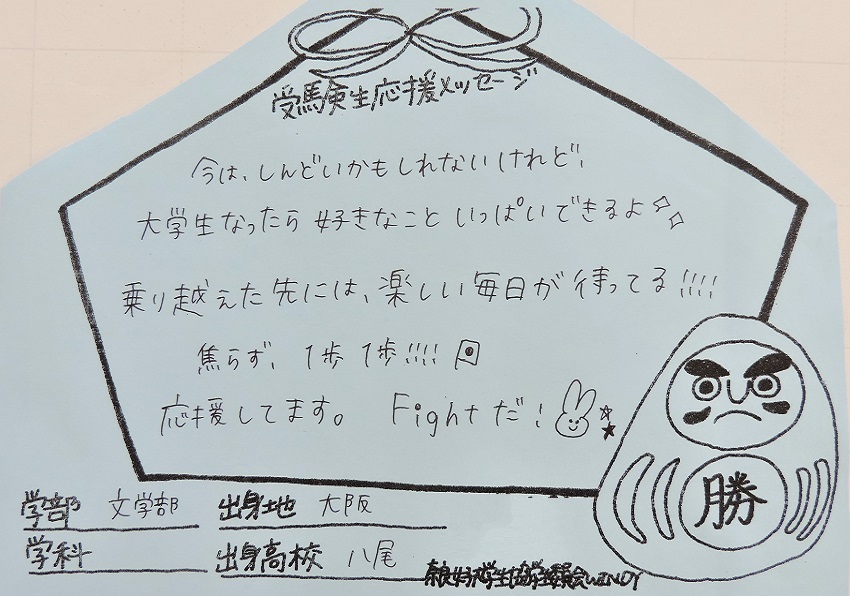 受験生応援メッセージ
今は、しんどいかもしれないけれど、
大学生なったら好きなこといっぱいできるよ
乗り越えた先には、楽しい毎日が待ってる!!!!
焦らず、1歩1歩!!!!
応援してます。 Fightだ!
勝
学部 文学部 出身地 大阪
学科 出身高校 八尾
奈良女子大学生協学生委員会WINDY